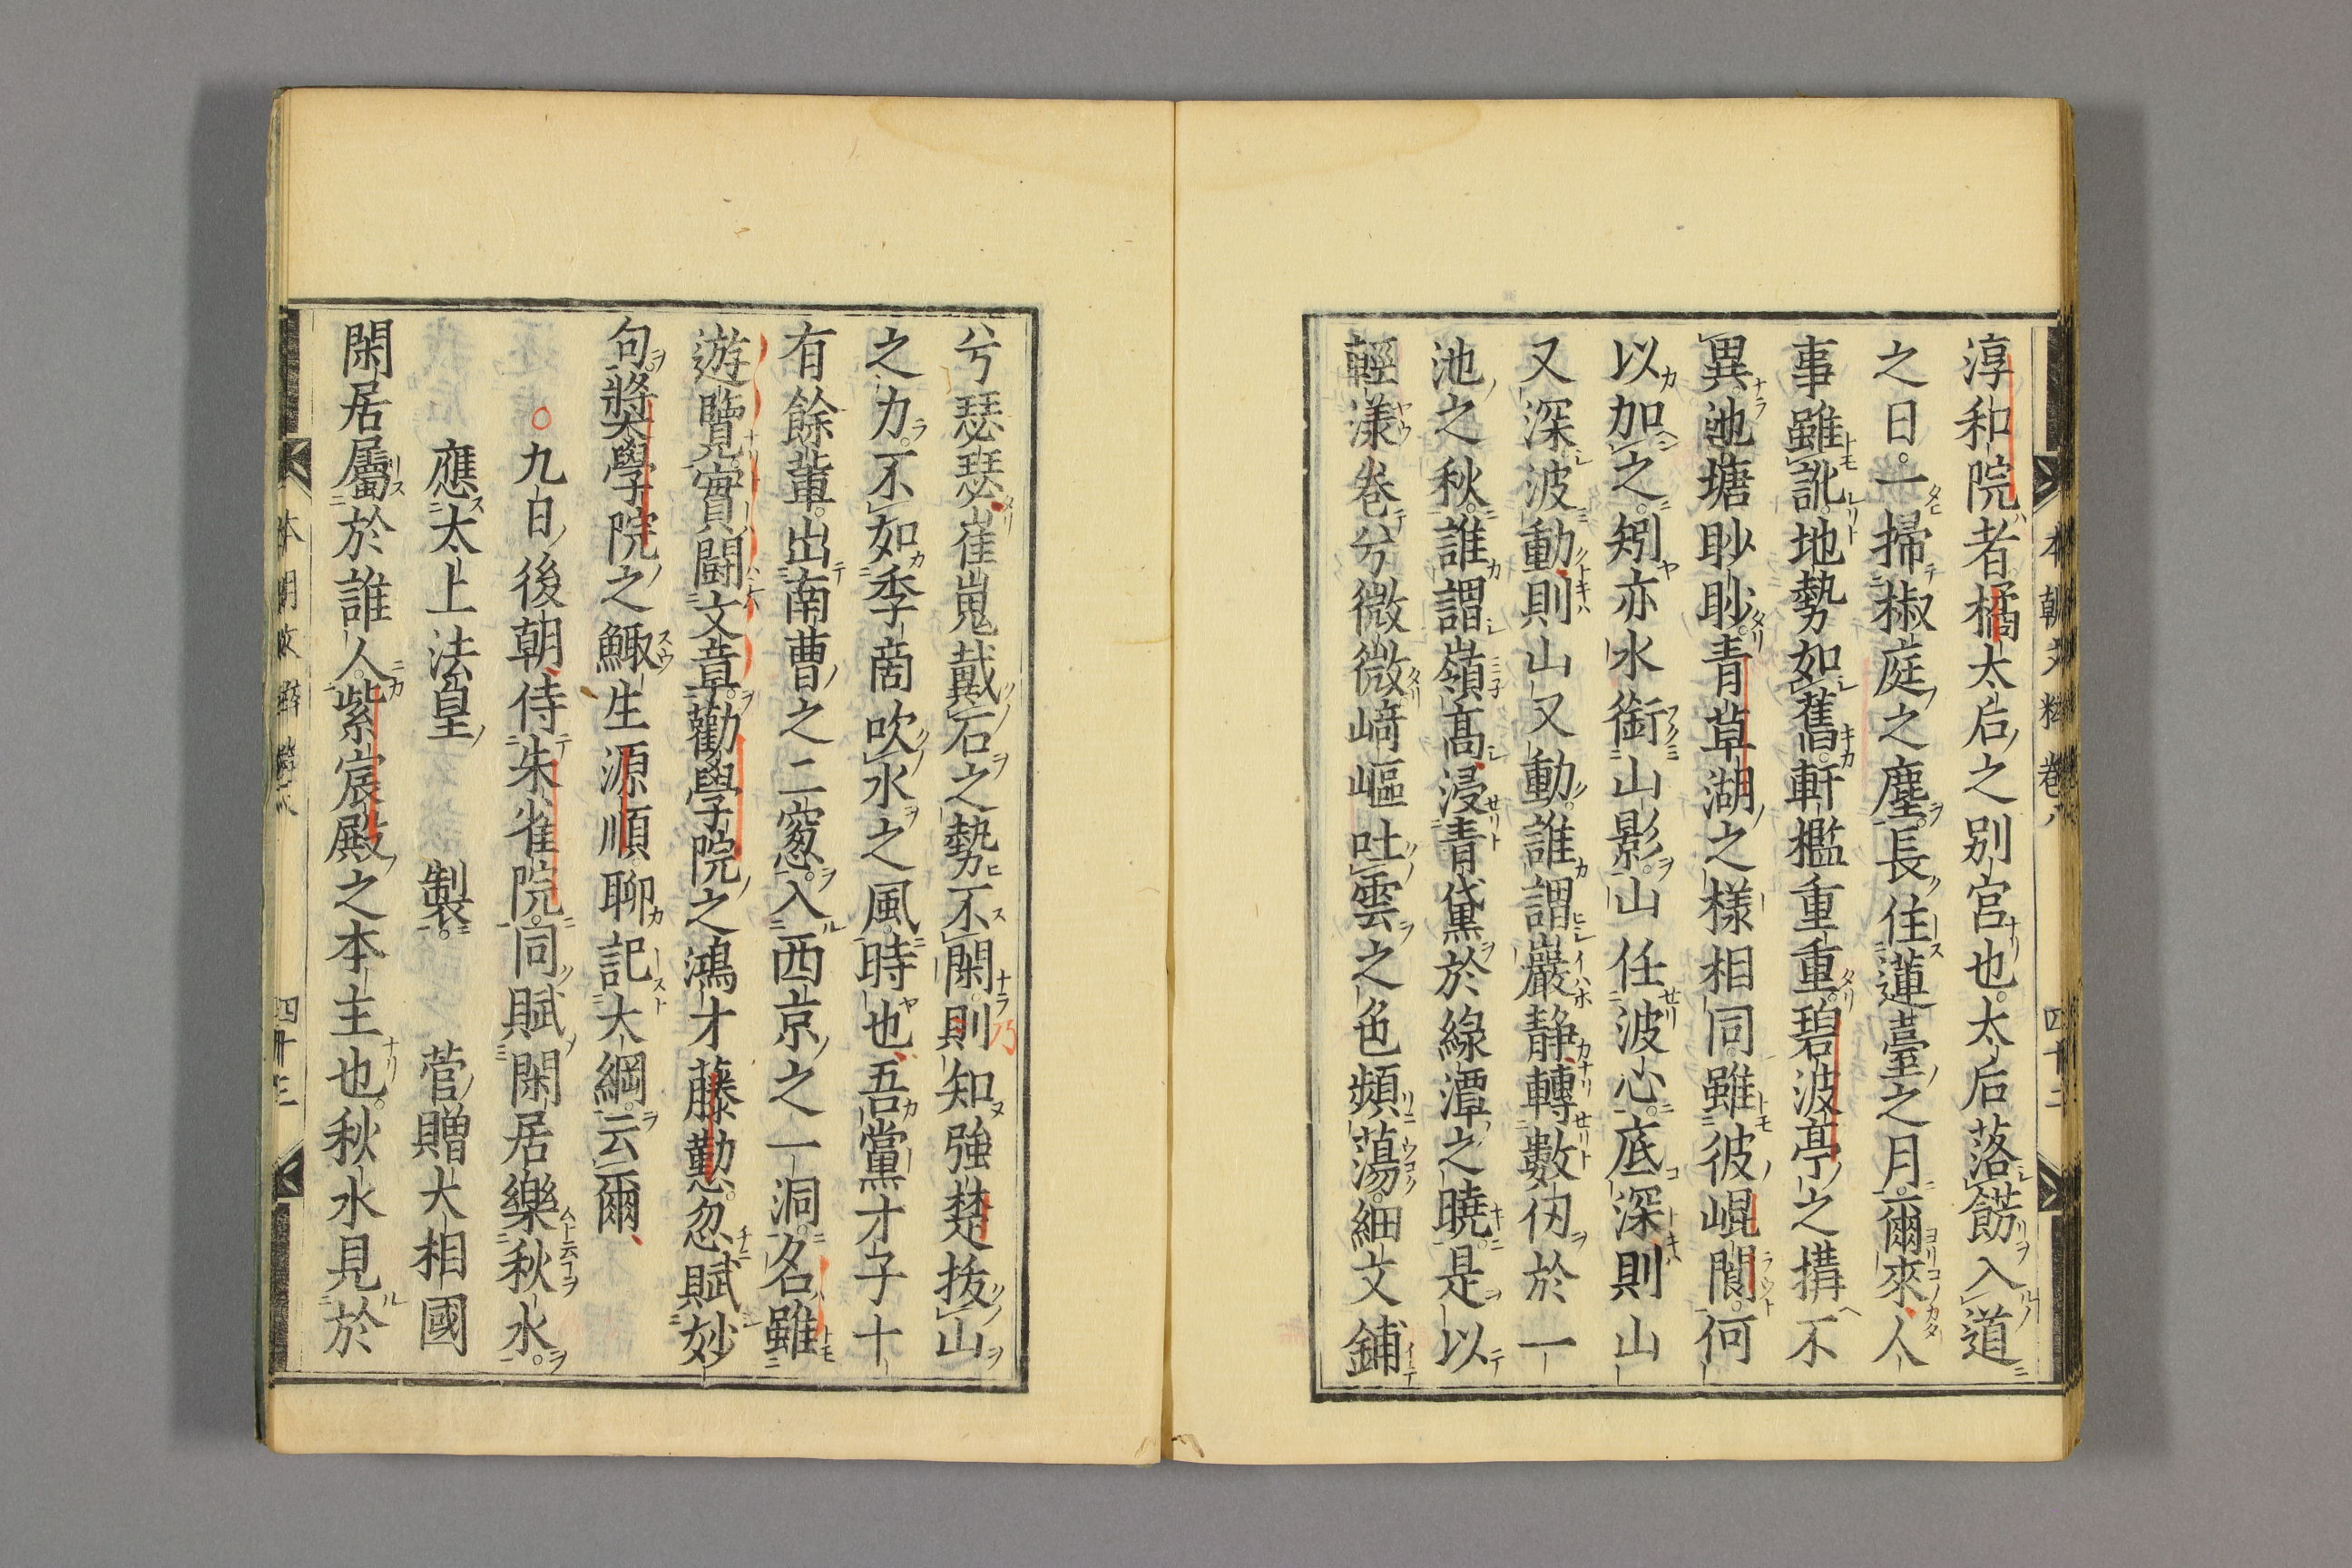 淳和院者橘太后之別宮也太后落餝入道
之日一掃椒庭之塵長住蓮臺之月爾來人
事雖訛地勢如舊軒檻重重碧波亭之搆不
異池塘眇眇青草湖之樣相同雖彼崐閬何
以加之矧亦水銜山影山任波心底深則山
又深波動則山又動誰謂巖静轉數仭於一
池之秋誰謂嶺髙浸青黛於綠潭之曉是以
輕漾卷兮微微﨑嶇吐雲之色頻蕩細文鋪
本朝文粹卷八 四十二
兮瑟瑟崔嵬戴石之勢不閑則知強楚抜山
之力不如季啇吹水之風時也吾黨才子十
有餘輩出南曹之二窓入西京之一洞名雖
遊覽實鬭文章勸學院之鴻才藤勤忽賦妙
句奬學院之鯫生源順聊記大綱云爾
九日後朝侍朱雀院同賦閑居樂秋水
應太上法皇 製 菅贈大相國
閑居屬於誰人紫宸殿之本主也秋水見於